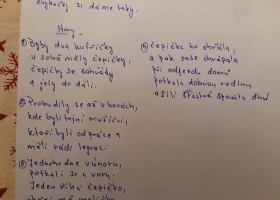 zvykačky si dáme taky.
Hory
① Byly dva kufříčky
v sobě měly čepičky,
čepičky se
a jely do dáli.
② Probudily se až v horách,
kde byli tajní mušičci,
kteří byli od práce a
měli rádi legraci
③ Jednoho dne v únoru,
potkali se u vory.
Jeden říká čepičko,
④ čepička ho ohřála,
a pak zase chrápala
při odjezdu domů
potkala dobrou rodinu
a žili šťastně spoustu dní